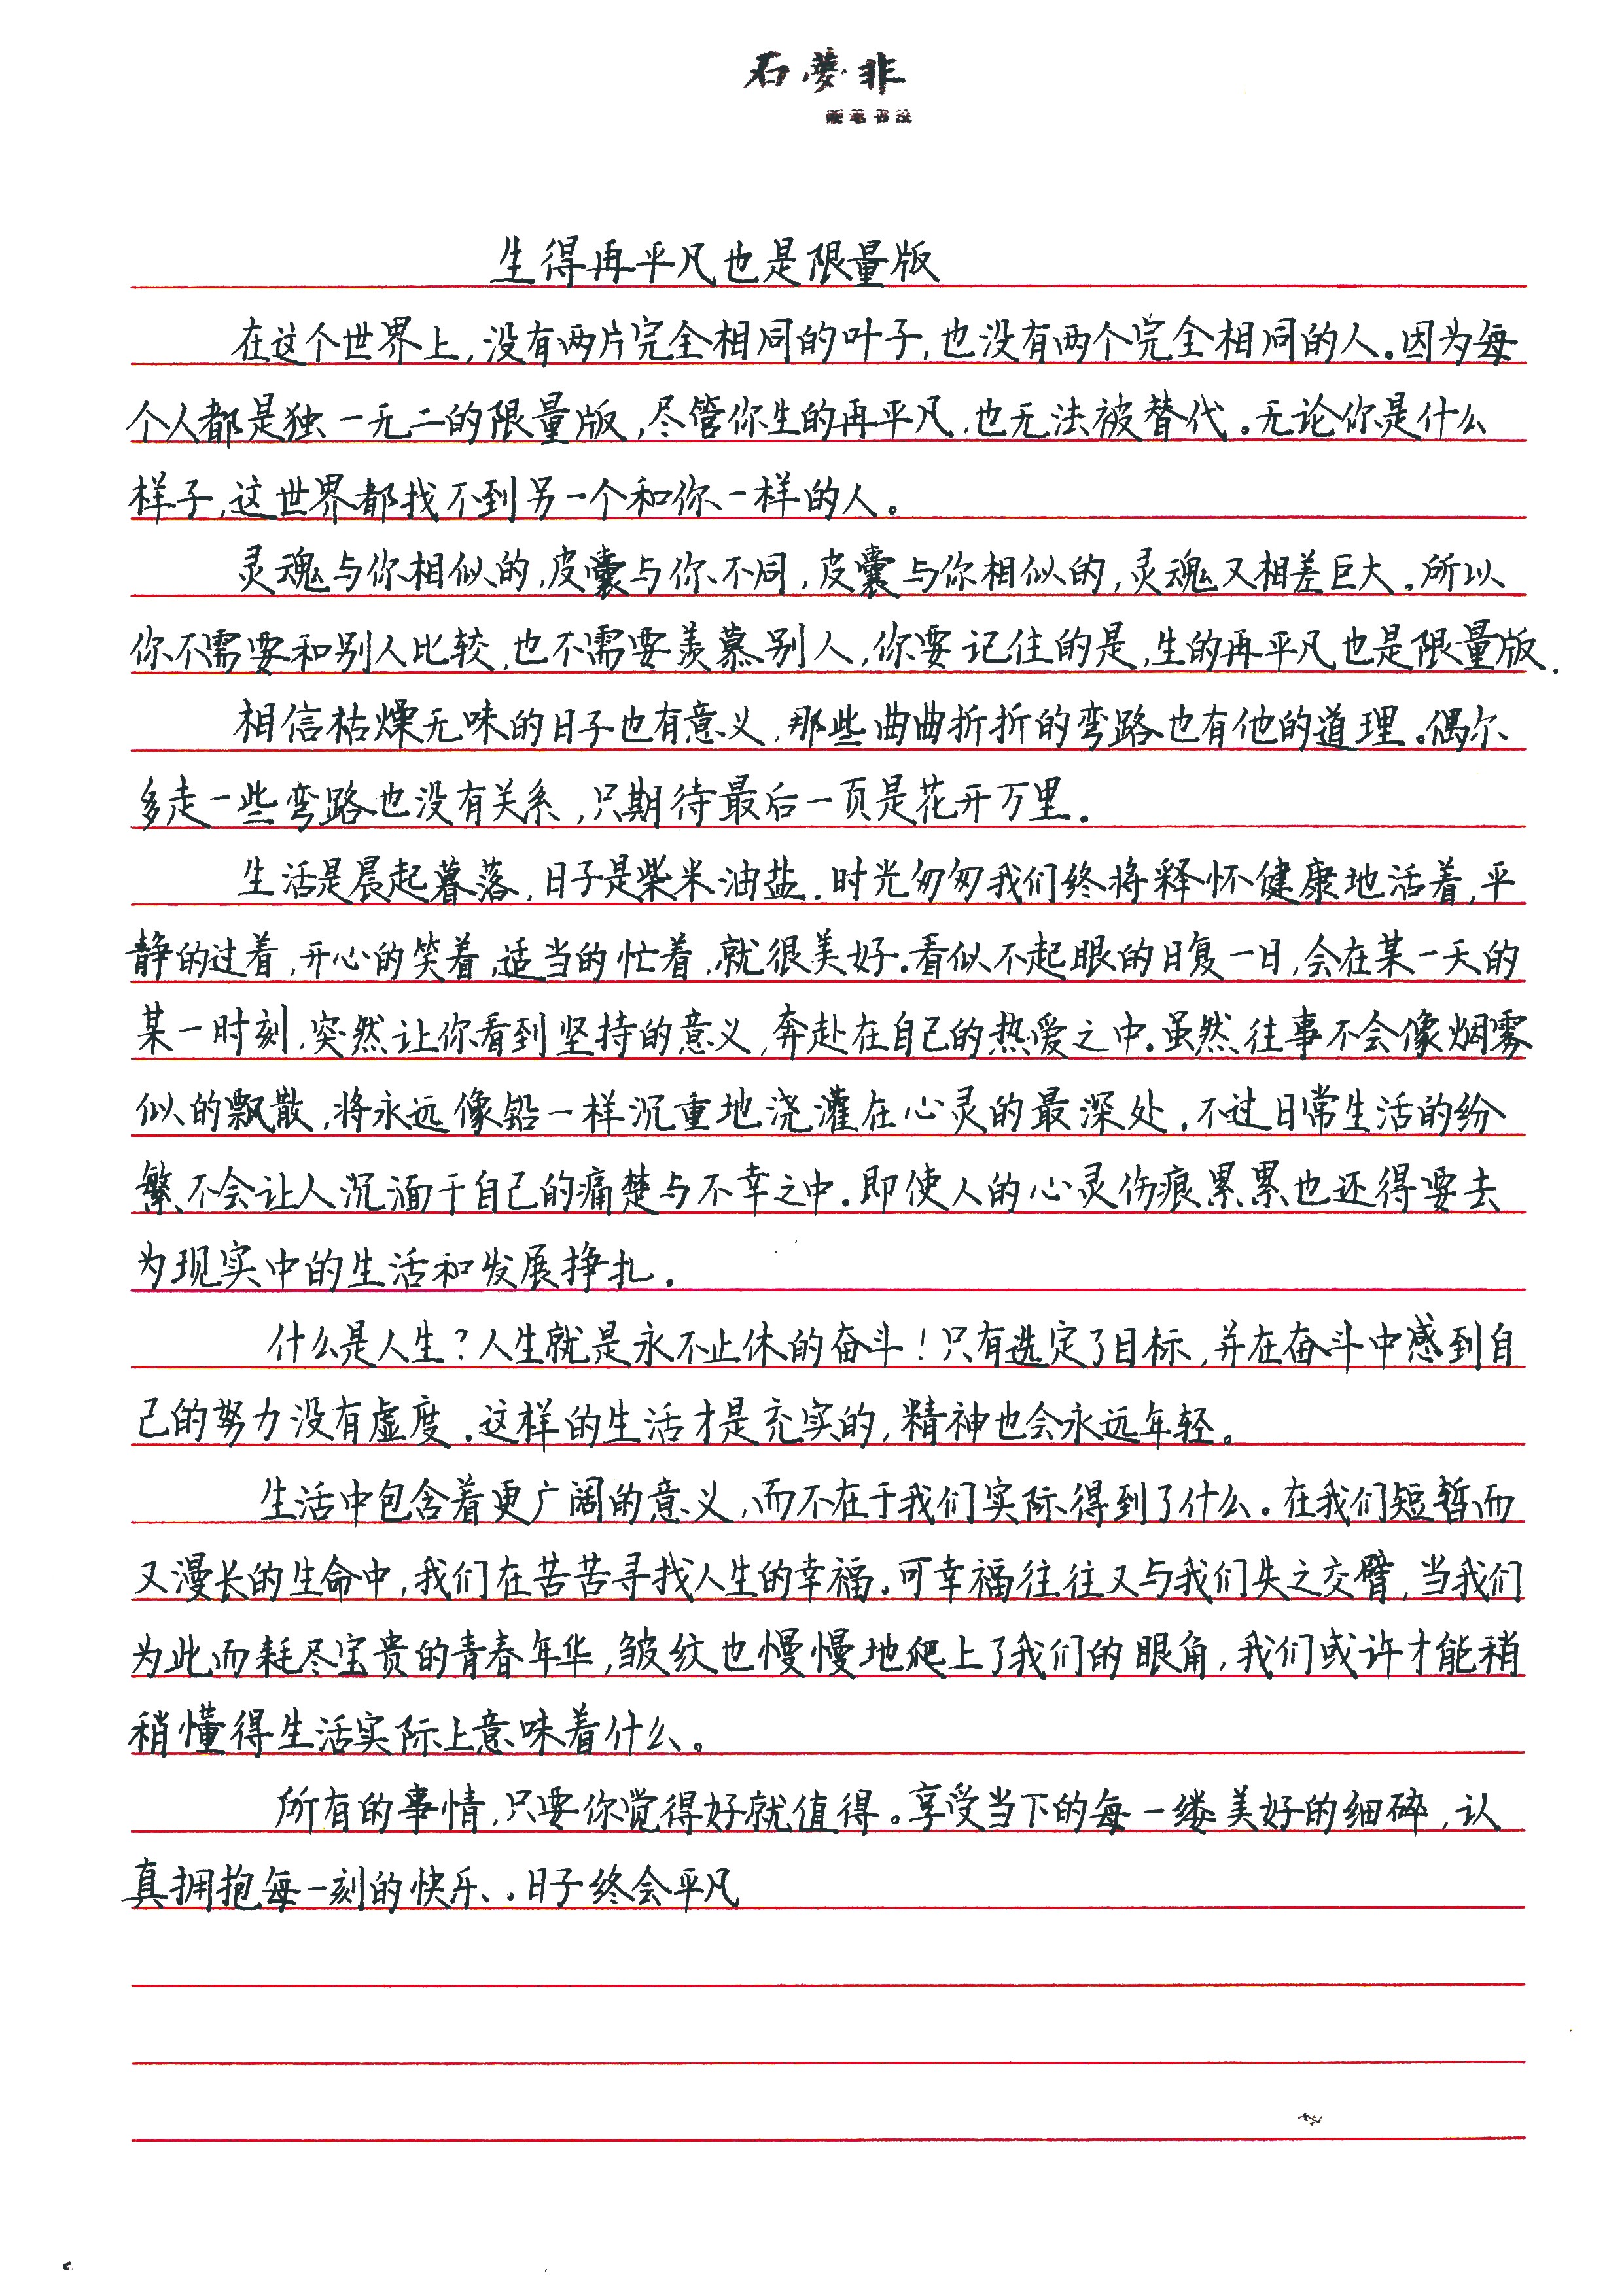 石夢非
硬笔书法
生得再平凡也是限量版
在这个世界上,没有两片完全相同的叶子,也没有两个完全相同的人.因为每
个人都是独一无二的限量版,尽管你生的再平凡,也无法被替代.无论你是什么
样子,这世界都找不到另一个和你一样的人。
灵魂与你相似的,皮囊与你不同,皮囊与你相似的,灵魂又相差巨大.所以
你不需要和别人比较,也不需要羡慕别人,你要记住的是,生的再平凡也是限量版.
相信枯燥无味的日子也有意义,那些曲曲折折的弯路也有他的道理。偶尔
多走一些弯路也没有关系,只期待最后一页是花开万里.
生活是晨起暮落,日子是柴米油盐.时光匆匆我们终将释怀健康地活着,平
静的过着,开心的笑着,适当的忙着,就很美好.看似不起眼的日复一日,会在某一天的
某一时刻,突然让你看到坚持的意义,奔赴在自己的热爱之中.虽然往事不会像烟雾
似的飘散,将永远像铅一样沉重地浇灌在心灵的最深处.不过日常生活的纷
繁不会让人沉湎于自己的痛楚与不幸之中.即使人的心灵伤痕累累也还得要去
为现实中的生活和发展挣扎.
什么是人生?人生就是永不止休的奋斗!只有选定了目标,并在奋斗中感到自
己的努力没有虚度.这样的生活才是充实的,精神也会永远年轻。
生活中包含着更广阔的意义,而不在于我们实际得到了什么。在我们短暂而
又漫长的生命中,我们在苦苦寻找人生的幸福.可幸福往往又与我们失之交臂,当我们
为此而耗尽宝贵的青春年华,皱纹也慢慢地爬上了我们的眼角,我们或许才能稍
稍懂得生活实际上意味着什么。
所有的事情,只要你觉得好就值得。享受当下的每一缕美好的细碎,认
真拥抱每一刻的快乐.日子终会平凡